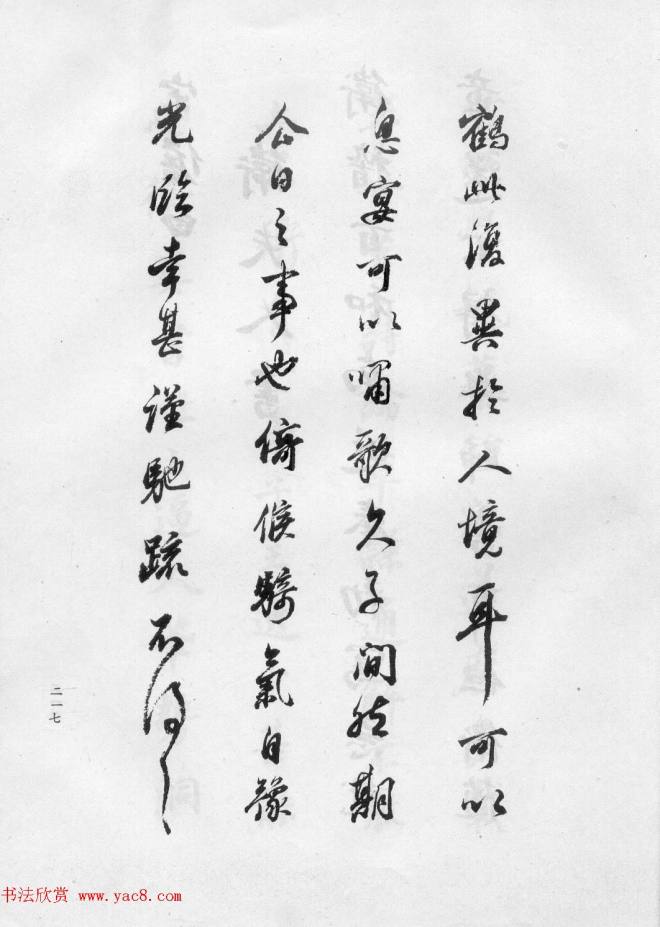 鶴此復異於人境耳可以
息宴可以嘯歌久子閒然期
公日之事也倚候騎氣自
光臨幸甚謹馳疏不
二一七
书法欣赏 www.yac8.com